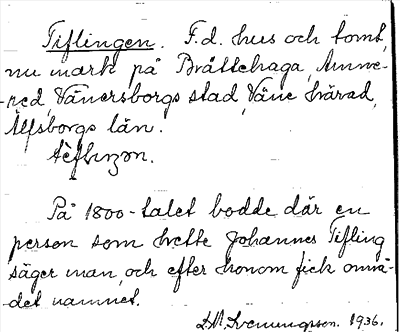 Tiflingen. F.d. hus och tomt,
nu mark på Brättehaga,
-ned, Vänersborgs stad, Väne härad,
Älfsborgs län.
På 1800-talet bodde där en
person som hette Johannes Tifling
säger man, och efter honom fick områ-
det namnet.
1936.